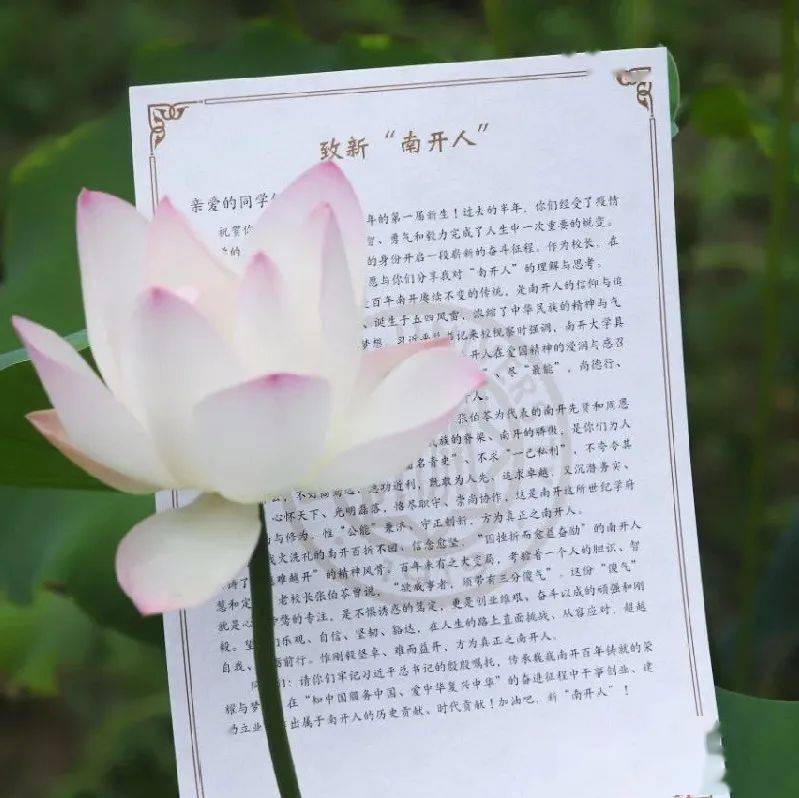 致新“南开人”
亲爱的同学
祝贺你 年的第一届新生！过去的半年，你们经受了疫情
智、勇气和毅力完成了人生中一次重要的蜕变。
的身份开启一段崭新的奋斗征程。作为校长，在
愿与你们分享我对“南开人”的理解与思考。
百年南开赓续不变的传统，是南开人的信仰与追
、诞生于五四风雷，浓缩了中华民族的精神与气
梦想。习近平 记来校视察时强调，南开大学具
开人在爱国精神的浸润与感召
”、尽“最能”，尚德行、
人。
张伯苓为代表的南开先贤和周恩
民族的脊梁、南开的骄傲，是你们为人
名青史”、不求“一己私利”，不夸夸其
急功近利，既敢为人先、追求卓越，又沉潜务实、
心怀天下、光明磊落，恪尽职守、崇尚协作，这是南开这所世纪学府
与修为，惟“公能”兼济、守正创新，方为真正之南开人。
火洗礼的南开百折不回、信念愈坚，“因挫折而愈益奋励”的南开人
涛了 难越开”的精神风骨。百年未有之大变局，考验着一个人的胆识、智
慧和定 老校长张伯苓曾说，“欲成事者，须带有三分傻气”，这份“傻气”
就是心 骛的专注，是不惧诱惑的笃定，更是创业维艰、奋斗以成的顽强和刚
毅。望 们乐观、自信、坚韧、豁达，在人生的路上直面挑战、从容应对，超越
自我、 前行。惟刚毅坚卓、难而益开，方为真正之南开人。
们：请你们牢记习近平总书记的殷殷嘱托，传承巍巍南开百年铸就的荣
耀与梦 在“知中国服务中国、爱中华复兴中华”的奋进征程中干事创业、建
功立业 出属于南开人的历史贡献、时代贡献！加油吧，新“南开人”！